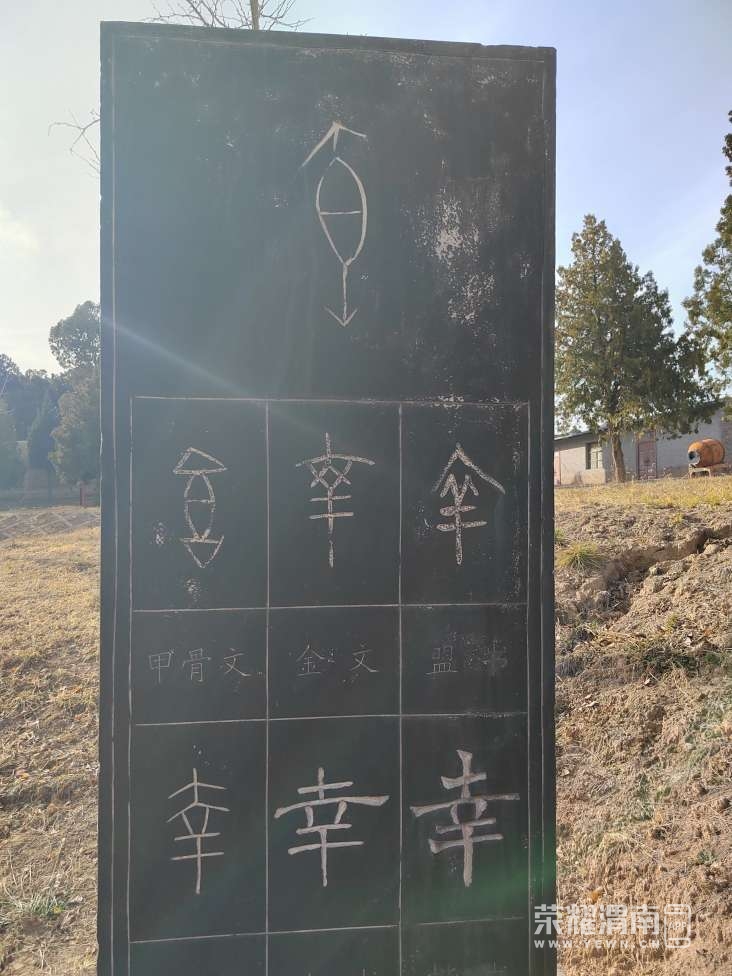 甲骨文 金文 盟书
幸 幸 幸
荣耀渭南
WWW.YEWN.CN
APP